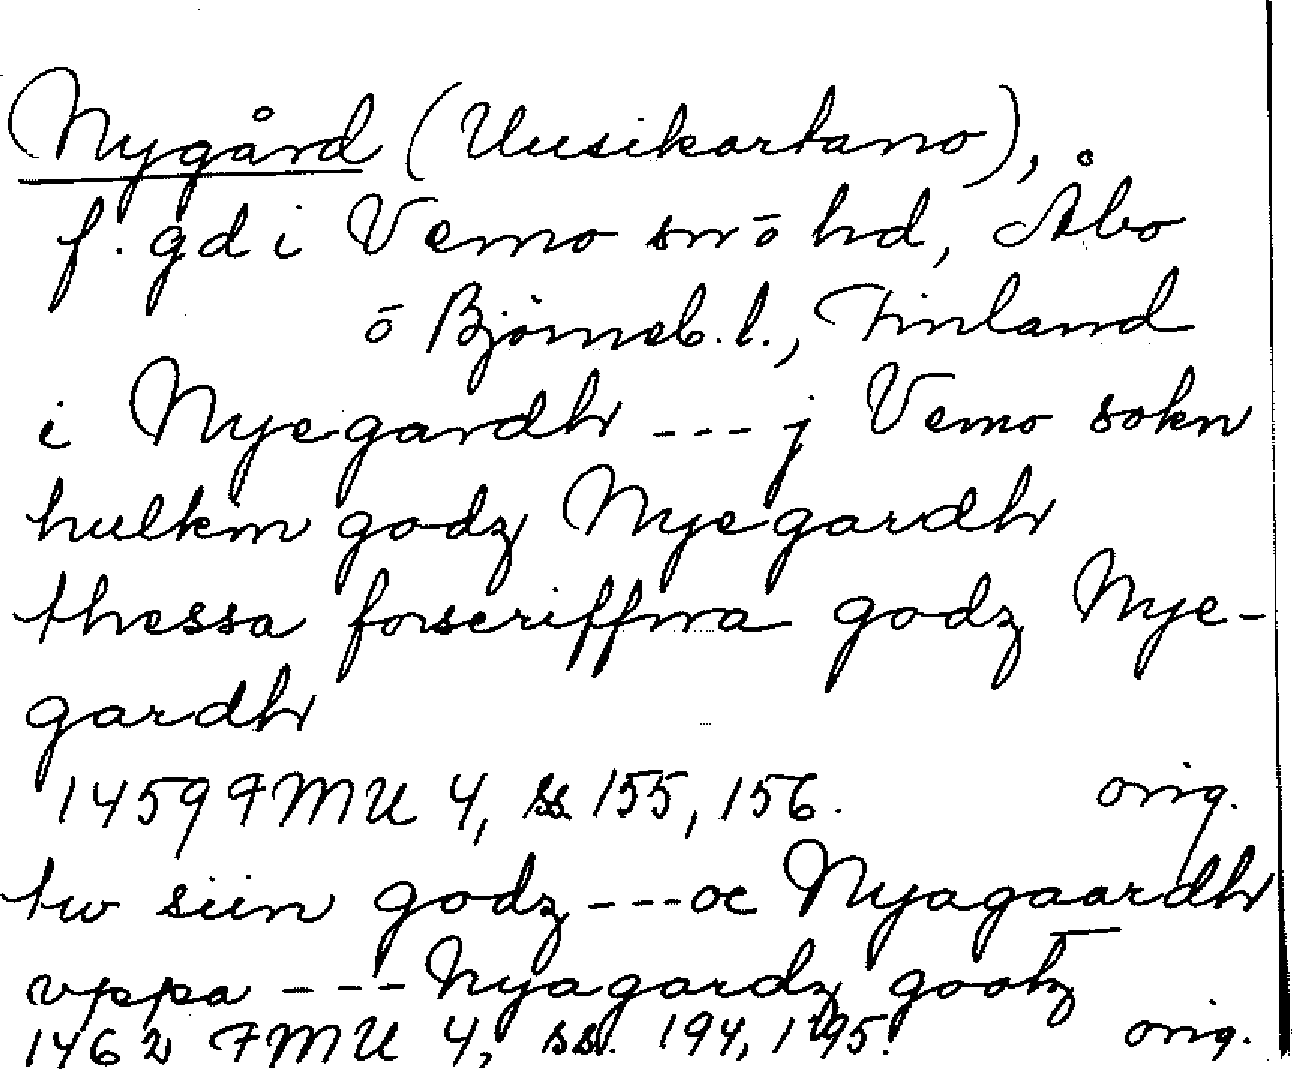 Nygård (Uusikartano),
f. gd i Vemo sn o hd, Åbo
o Björneb. l., Finland
i Nyegardh --- j Vemo sokn
hulkin godz Nyegardh
thessa forscriffna godz Nye-
gardh
1459 FMU 4, ss. 155, 156. orig.
tw siin godz --- oc Nyagaardh
vppa --- Nyagardz gootz
1462 FMU 4, ss. 194, 195. orig.